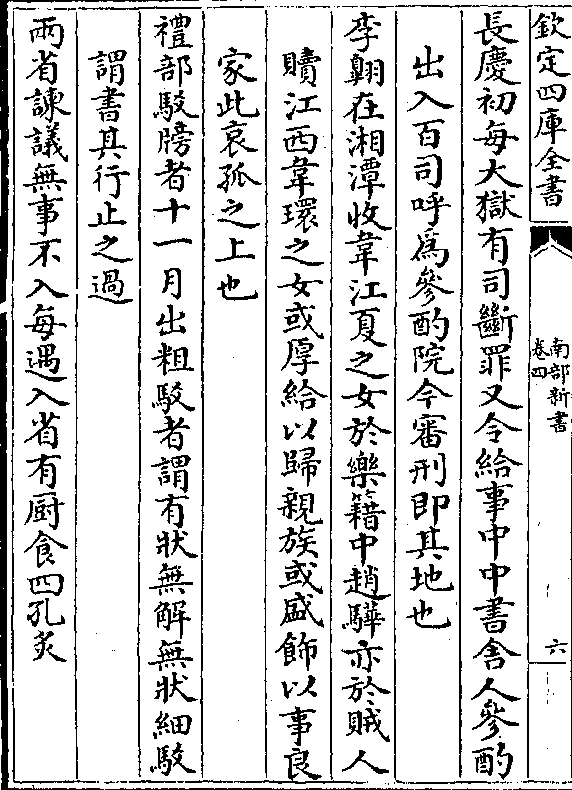 欽定四庫全書
南部新書
卷四
六
長慶初每大獄有司斷罪又令給事中中書舍人參酌
出入百司呼為參酌院今審刑即其地也
李翶在湘潭收韋江夏之女於樂籍中趙驊亦於賊人
贖江西韋環之女或厚給以歸親族或盛飾以事良
家此哀孤之上也
禮部駮牓者十一月出粗駮者謂有狀無解無狀細駮
謂書其行止之過
兩省諫議無事不入每遇入省有厨食四孔炙